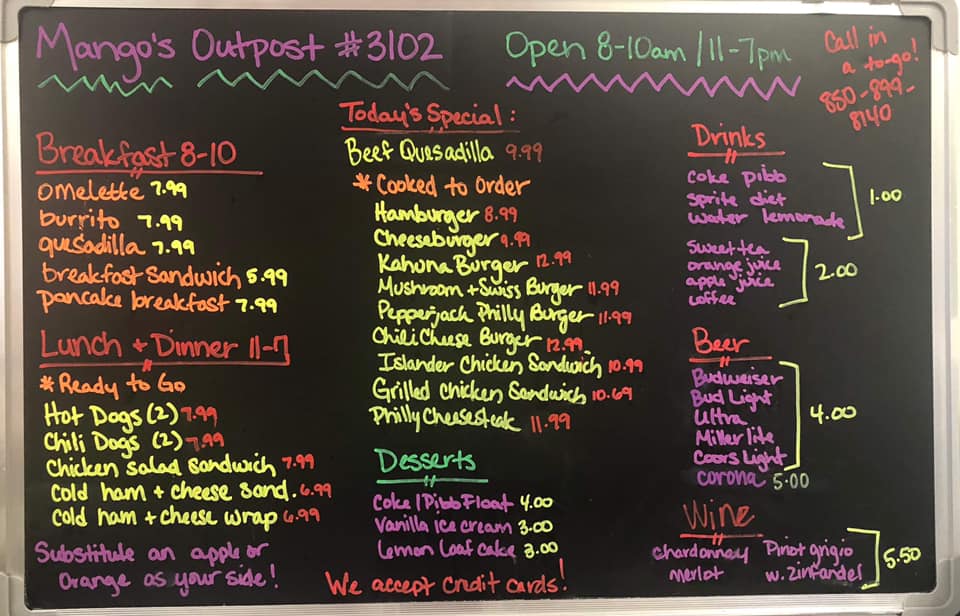 Mango's Outpost #3102
Open 8-10am / 11-7pm
Call in
a to-go!
850-899-
8140
Breakfast 8-10
omelette 7.99
burrito 7.99
quesadilla 7.99
breakfast sandwich 5.99
pancake breakfast 7.99
Lunch + Dinner 11-7
*Ready to Go
Hot Dogs (2) 7.99
Chili Dogs (2) 7.99
Chicken Salad Sandwich 7.99
Cold ham + cheese Sand. 6.99
Cold ham + cheese wrap 6.99
Substitute an apple or
Orange as your side!
Today's Special:
Beef Quesadilla 9.99
*Cooked to Order
Hamburger 8.99
Cheeseburger 9.99
Kahuna Burger 12.99
Mushroom + Swiss Burger 11.99
Pepperjack Philly Burger 11.99
Chili Cheese Burger 12.99
Islander Chicken Sandwich 10.99
Grilled Chicken Sandwich 10.69
Philly Cheesesteak 11.99
Desserts
Coke/Pibb Float 4.00
Vanilla Ice cream 3.00
Lemon Loaf cake 3.00
We accept Credit cards!
Drinks
coke pibb
sprite diet
water lemonade
1.00
sweet tea
orange juice
apple juice
coffee
2.00
Beer
Budweiser
Bud Light
Ultra
Miller lite
Coors Light
4.00
corona 5.00
Wine
Chardonney Pinot grigio
Merlot w. Zinfandel
5.50